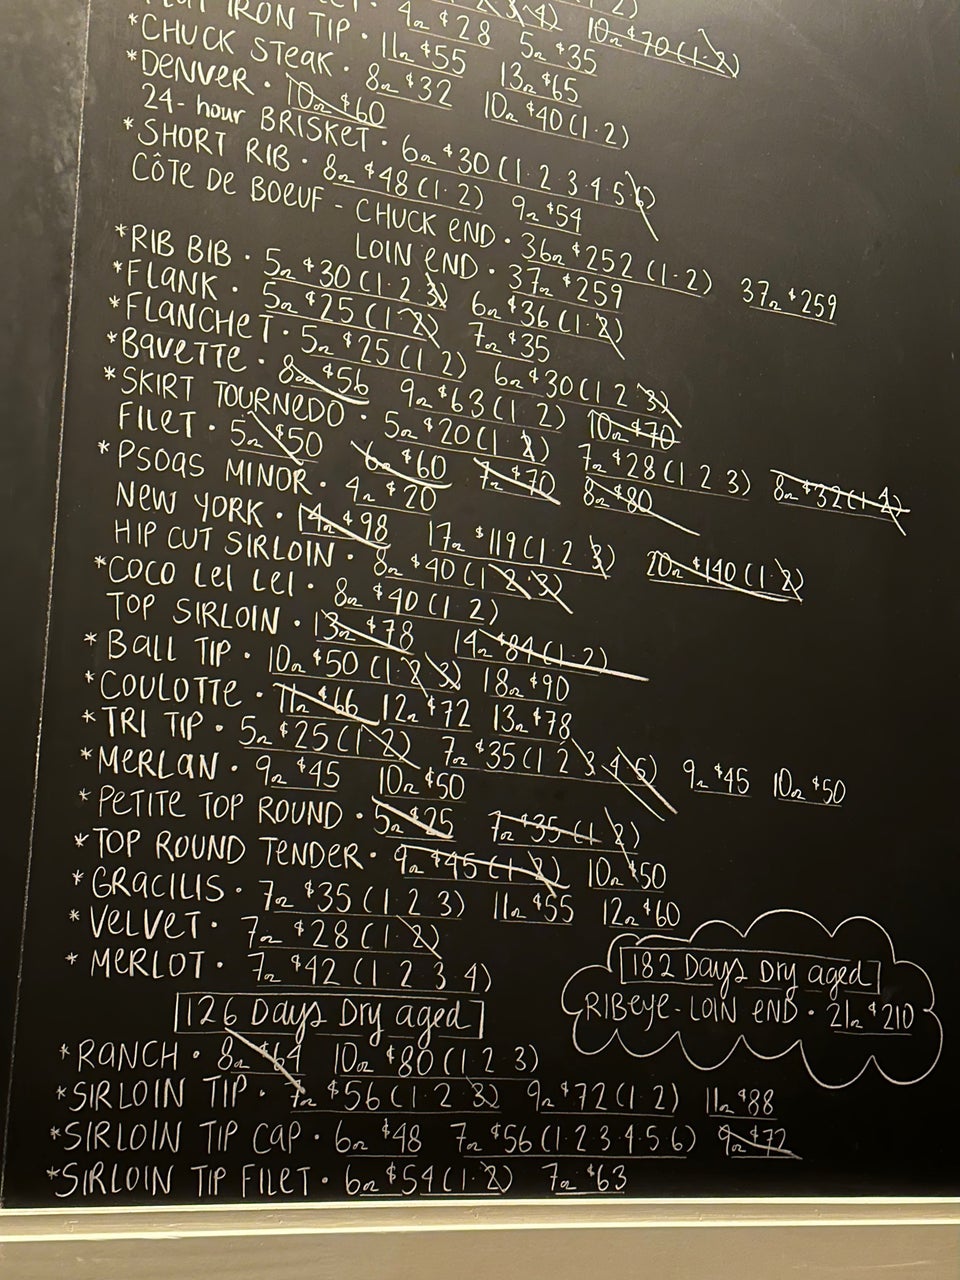 IRON TIP · 4oz $28 5oz $35 10oz $70 (1·2)
*CHUCK STEAK · 11oz $55 13oz $65
*DENVER · 10oz $60 8oz $32 10oz $40 (1·2)
24-hour BRISKET · 6oz $30 (1·2·3·4·5·6)
*SHORT RIB · 8oz $48 (1·2) 9oz $54
CÔTE DE BOEUF - CHUCK END · 36oz $252 (1·2) 37oz $259
LOIN END · 37oz $259
*RIB BIB · 5oz $30 (1·2·3) 6oz $36 (1·2)
*FLANK · 5oz $25 (1·2) 7oz $35
*FLANCHET · 5oz $25 (1·2) 6oz $30 (1·2·3)
*BAVETTE · 8oz $56 9oz $63 (1·2) 10oz $70
*SKIRT TOURNEDO · 5oz $20 (1·2) 7oz $28 (1·2·3) 8oz $32
FILET · 5oz $50 6oz $60 7oz $70 8oz $80
*PSOAS MINOR · 4oz $20
NEW YORK · 14oz $98 17oz $119 (1·2·3) 20oz $140 (1·2)
HIP CUT SIRLOIN · 8oz $40 (1·2·3)
*COCO LEI LEI · 8oz $40 (1·2)
TOP SIRLOIN · 13oz $78 14oz $84 (1·2)
*BALL TIP · 10oz $50 (1·2·3) 18oz $90
*COULOTTE · 11oz $66 12oz $72 13oz $78
*TRI TIP · 5oz $25 (1·2) 7oz $35 (1·2·3·4·5) 9oz $45 10oz $50
*MERLAN · 9oz $45 10oz $50
*PETITE TOP ROUND · 5oz $25 7oz $35 (1·2)
*TOP ROUND TENDER · 9oz $45 (1·2) 10oz $50
*GRACILIS · 7oz $35 (1·2·3) 11oz $55 12oz $60
*VELVET · 7oz $28 (1·2)
*MERLOT · 7oz $42 (1·2·3·4)
182 Days Dry aged
RIBEYE - LOIN END · 21oz $210
126 Days Dry aged
*RANCH · 8oz $64 10oz $80 (1·2·3)
*SIRLOIN TIP · 7oz $56 (1·2·3) 9oz $72 (1·2) 11oz $88
*SIRLOIN TIP CAP · 6oz $48 7oz $56 (1·2·3·4·5·6) 9oz $72
*SIRLOIN TIP FILET · 6oz $54 (1·2) 7oz $63